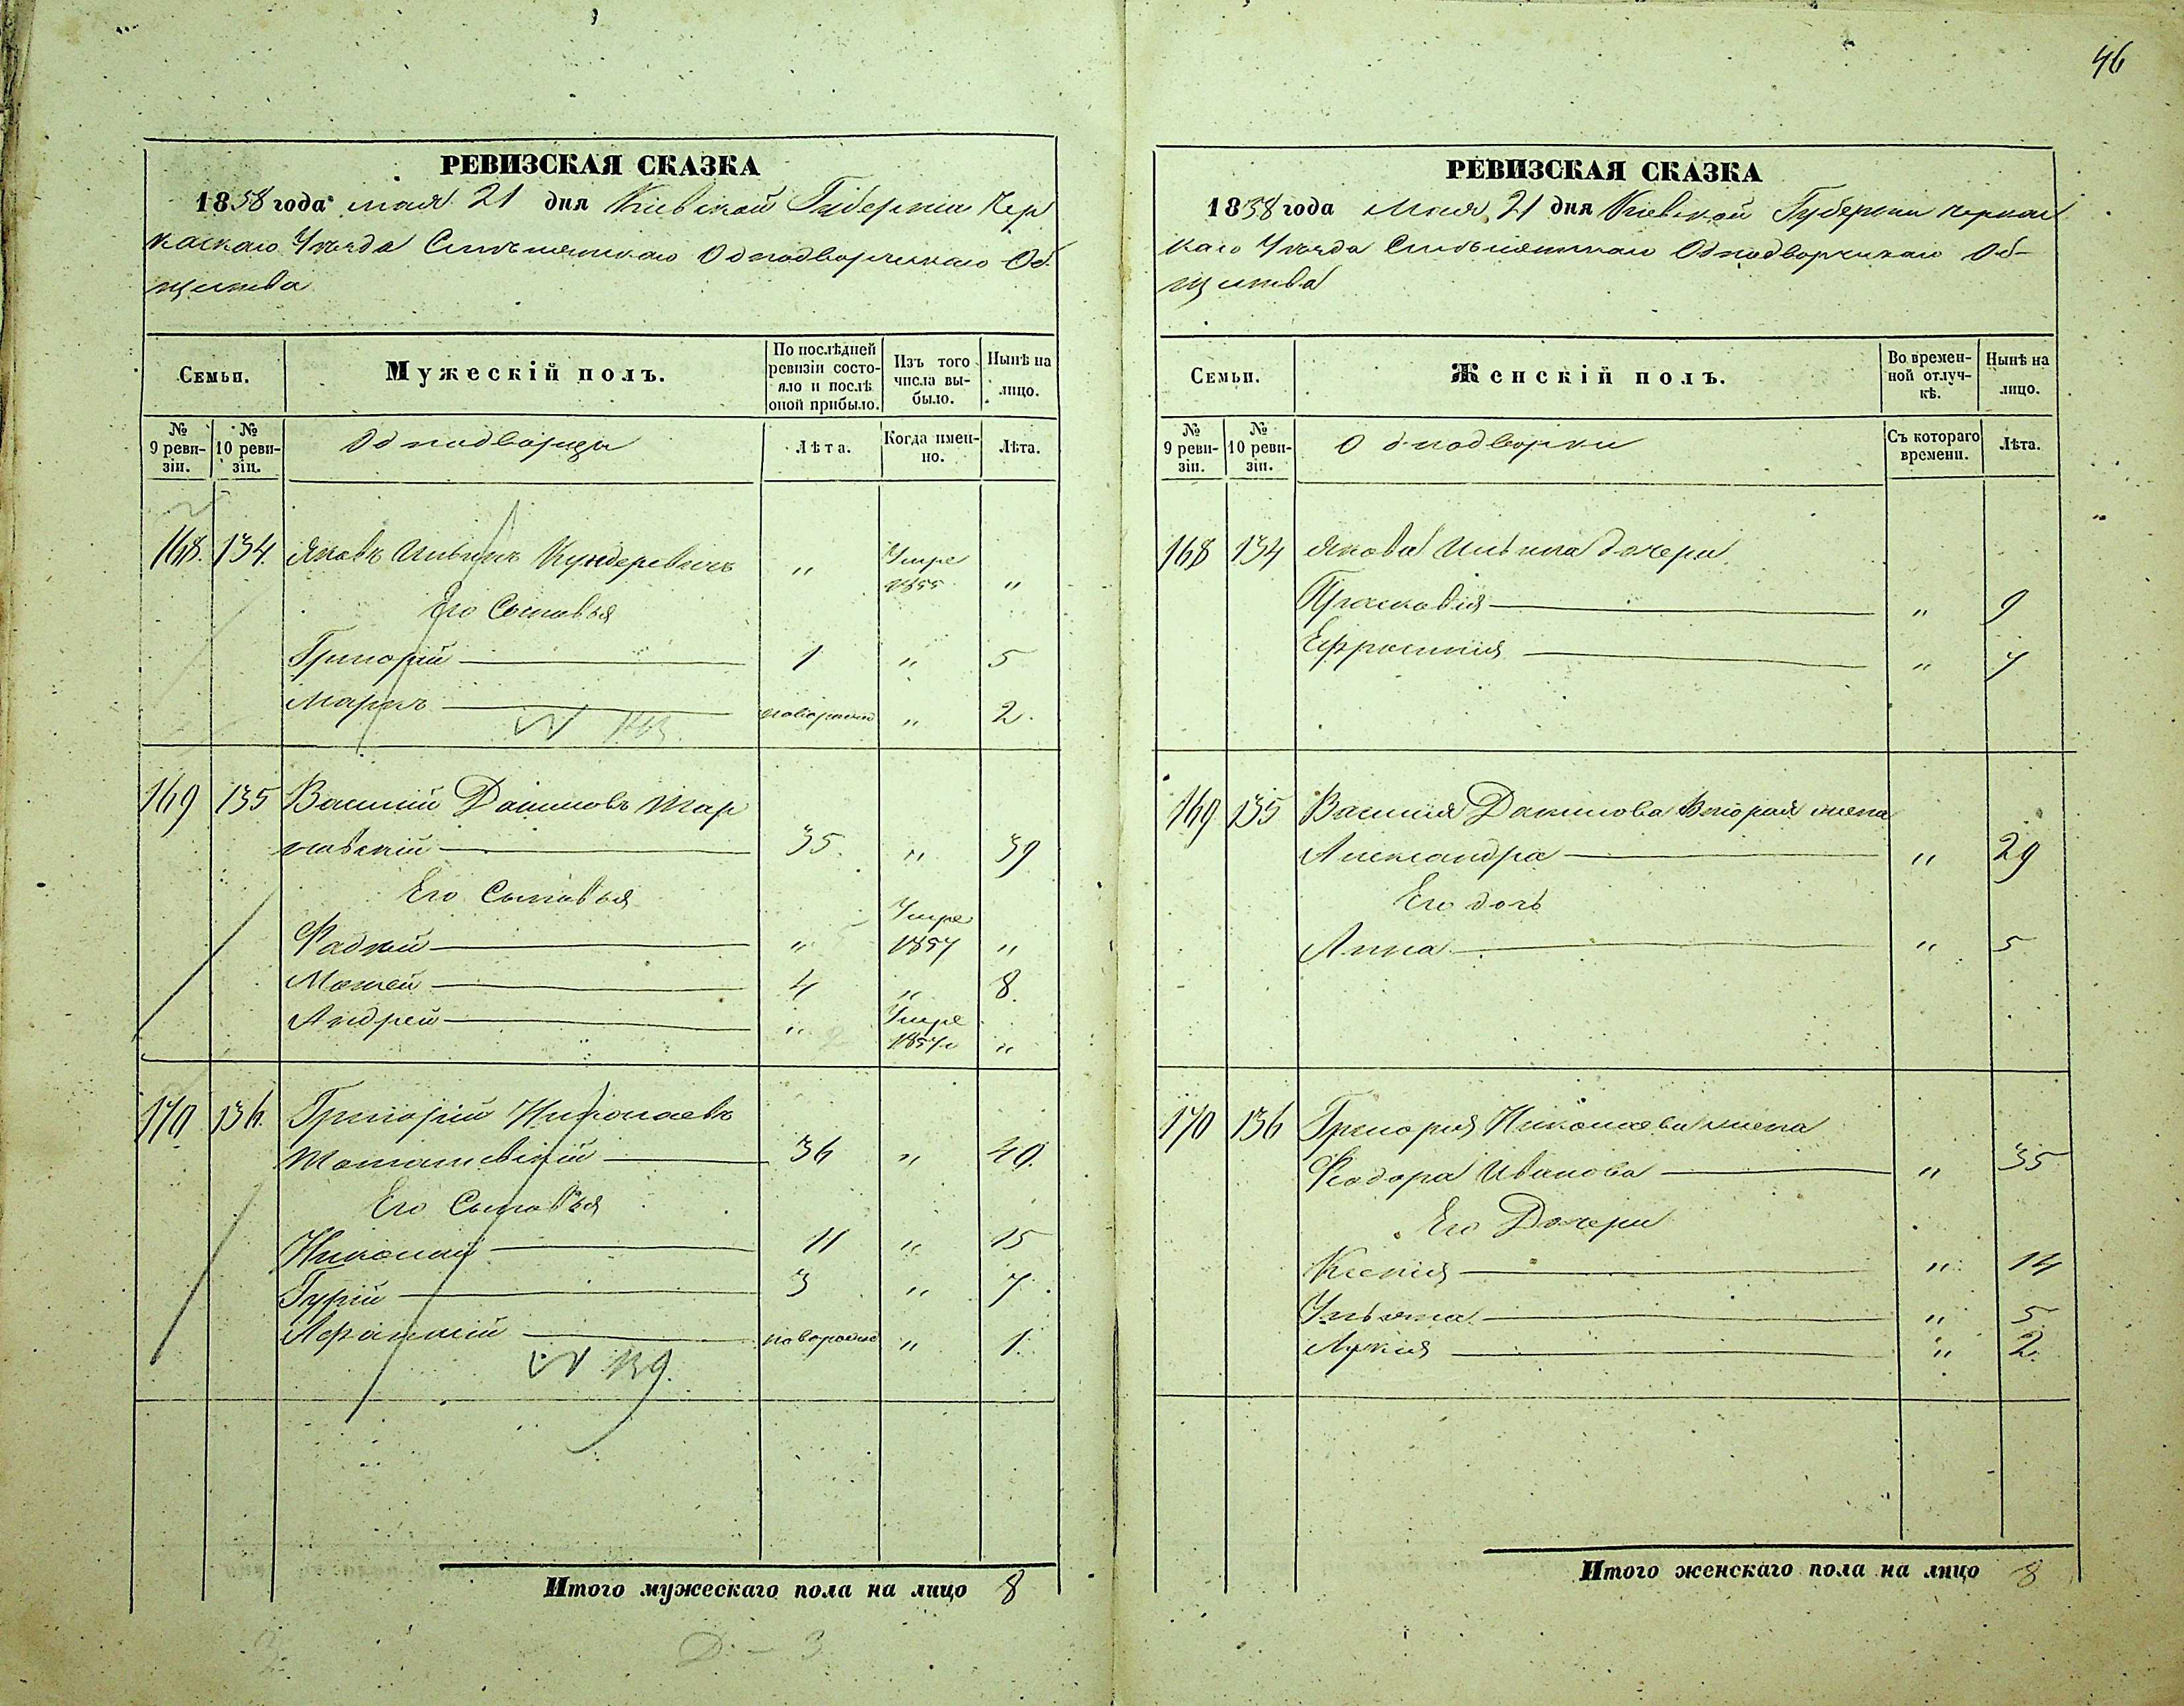 46
РЕВИЗСКАЯ СКАЗКА
1858 года мая 21 дня Кіевской Губерніи Чер
каскаго Уезда Смелянскаго Однодворческаго Об-
щества
Семьи.
Мужескій полъ.
По послѣдней ревизіи состояло и послѣ оной прибыло.
Изъ того числа выбыло.
Нынѣ на лицо.
№ 9 ревизіи.
№ 10 ревизіи.
Однодворцы
Лѣта.
Когда именно.
Лѣта.
168. 134. Яковъ Ильинъ " Умре 1855 "
Его Сыновья
Григорій 1 " 5
Марко " 2.
169 135 Василий Даниловъ
35 " 39
Его Сыновья
Фадей " Умре 1857 "
Мосей 4 " 8.
Андрей " Умре 1857 "
170 136. Григорій Николаевъ
36 " 40.
Его Сыновья
Николай 11 " 15
Гурій 3 " 7.
Афанасій новорожд " 1.
N 139.
Итого мужескаго пола на лицо 8
РЕВИЗСКАЯ СКАЗКА
1858 года Мая 21 дня Кіевской Губернии Черкас
каго Уезда Смелянскаго Однодворческаго Об-
щества
Семьи.
Женскій полъ.
Во временной отлучкѣ.
Нынѣ на лицо.
№ 9 ревизіи.
№ 10 ревизіи.
Однодворки
Съ котораго времени.
Лѣта.
168 134 Якова Ильина дочери
Прасковія " 9
Ефросинія " 7
169 135 Василия Данилова Вторая жена
Александра " 29
Его дочь
Анна " 5
170 136 Григорія Николаева жена
Феодора Иванова " 35
Его Дочери
Ксенія " 14
Ульяна " 5
" 2.
Итого женскаго пола на лицо 8